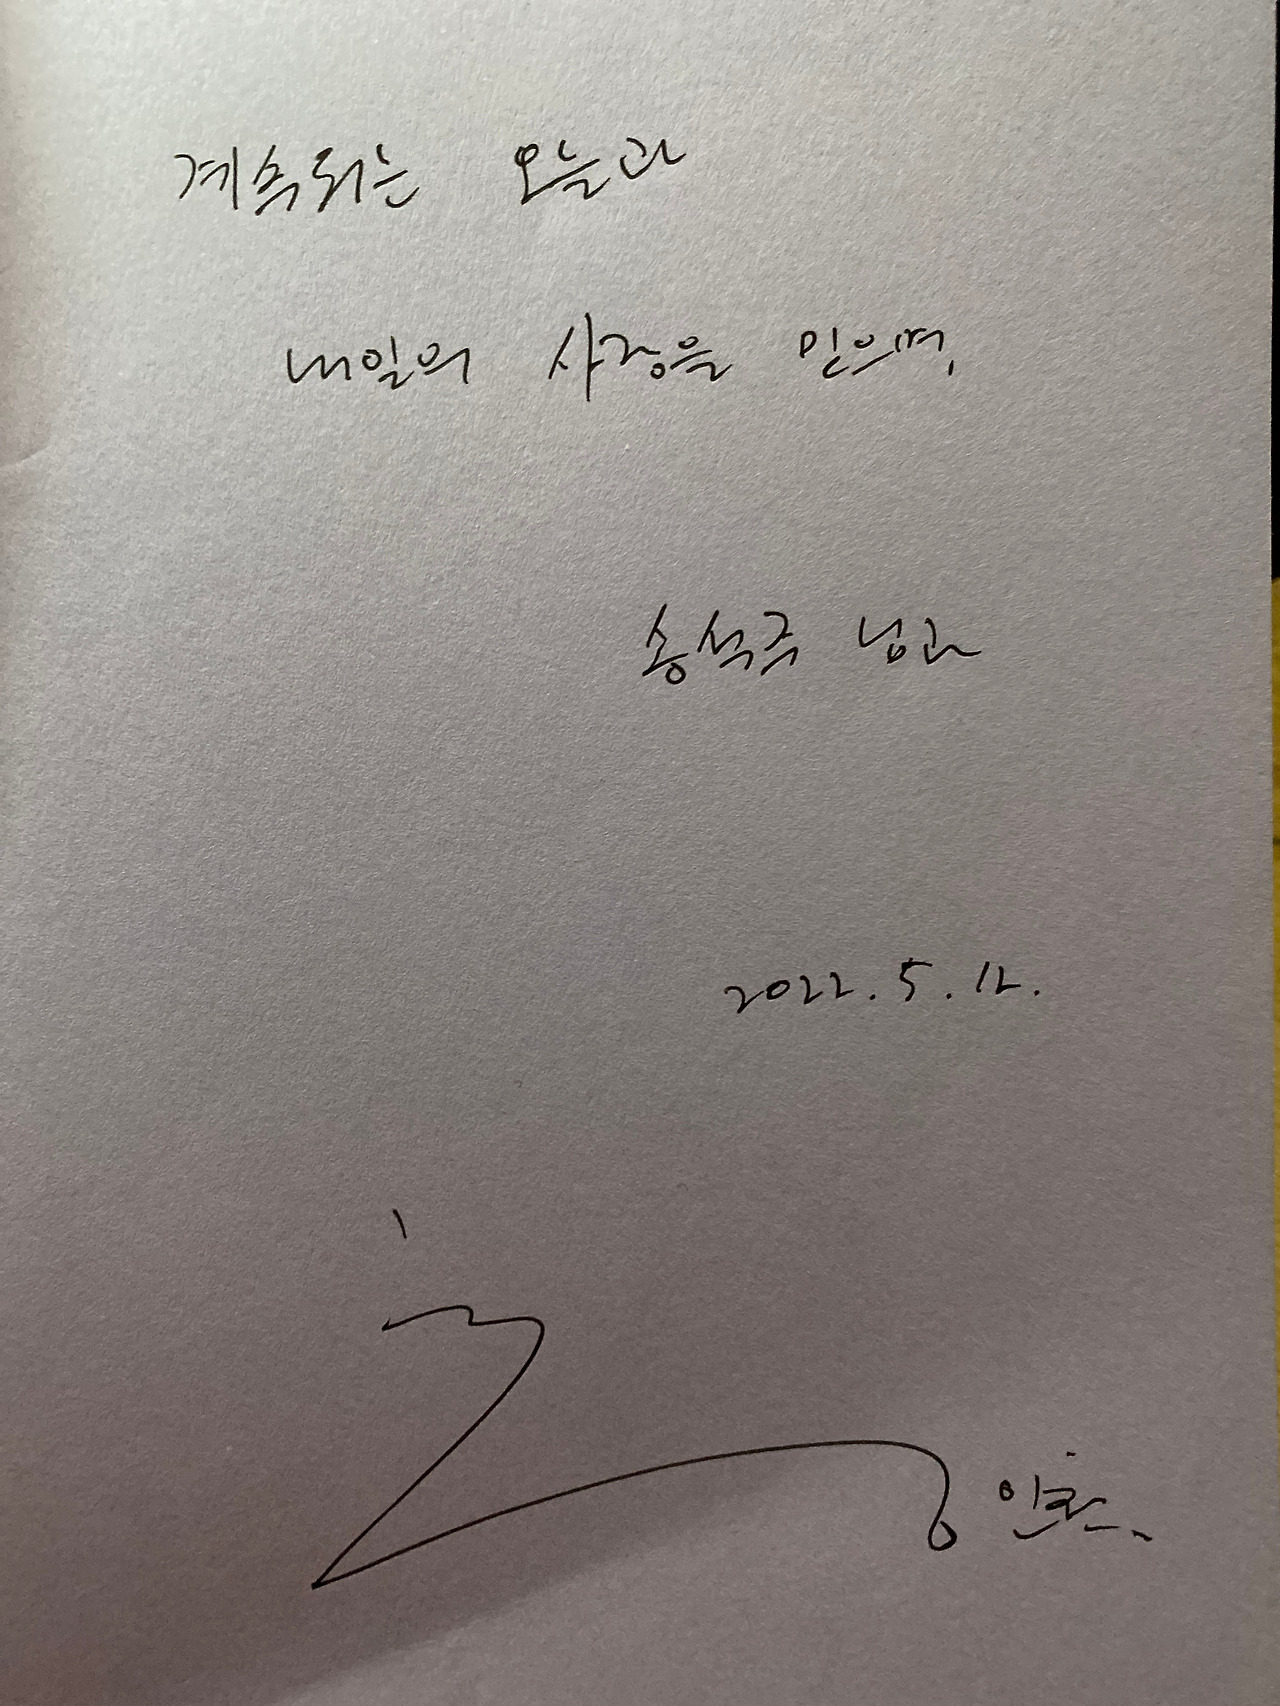 계속되는 오늘과
내일의 사랑을 믿으며,
송석주 님과
2022. 5. 12.
인찬